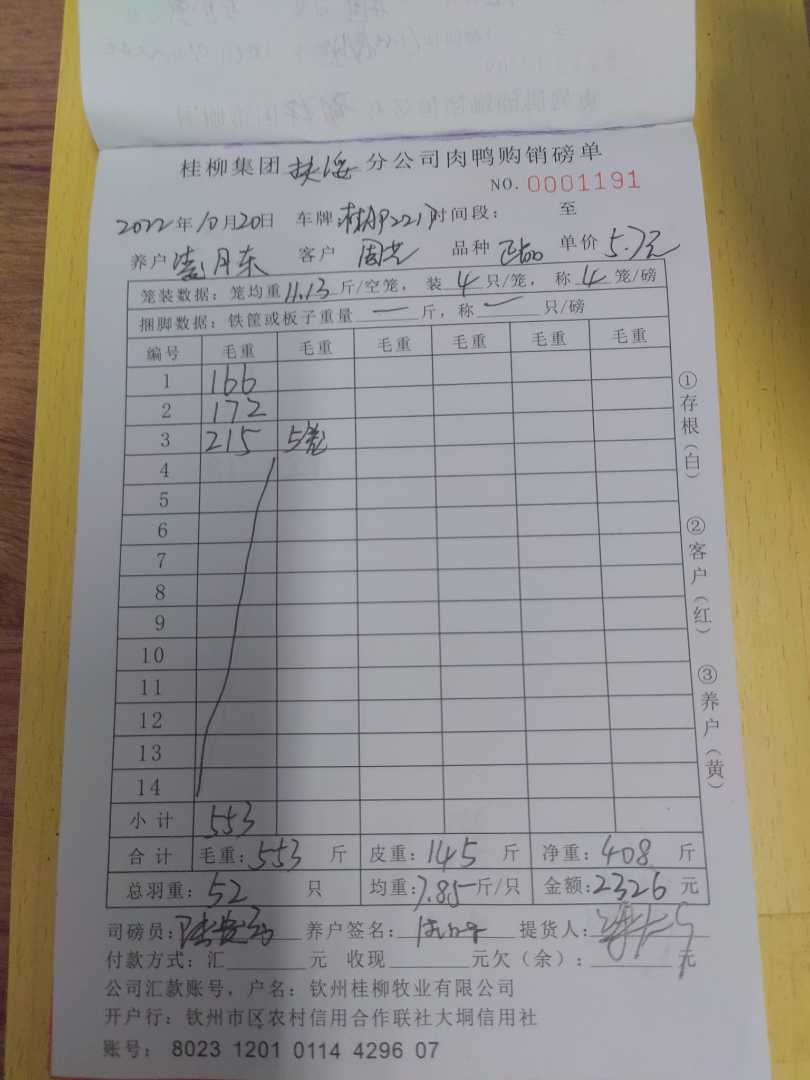 桂柳集团扶绥分公司肉鸭购销磅单
NO. 0001191
2022年10月20日 车牌 时间段： 至
养户 月东 客户 周 品种 单价5.7元
笼装数据：笼均重11.13斤/空笼，装4只/笼，称4笼/磅
捆脚数据：铁筐或板子重量一斤，称一只/磅
编号 毛重 毛重 毛重 毛重 毛重 毛重
1 166
2 172
3 215 5笼
4
5
6
7
8
9
10
11
12
13
14
小计 553
合计 毛重：553斤 皮重：145斤 净重：408斤
总羽重：52只 均重：7.85斤/只 金额：2326元
司磅员： 养户签名： 提货人：
付款方式：汇 元 收现 元欠（余）： 元
公司汇款账号，户名：钦州桂柳牧业有限公司
开户行：钦州市区农村信用合作联社大垌信用社
账号： 8023 1201 0114 4296 07
①存根（白）
②客户（红）
③养户（黄）